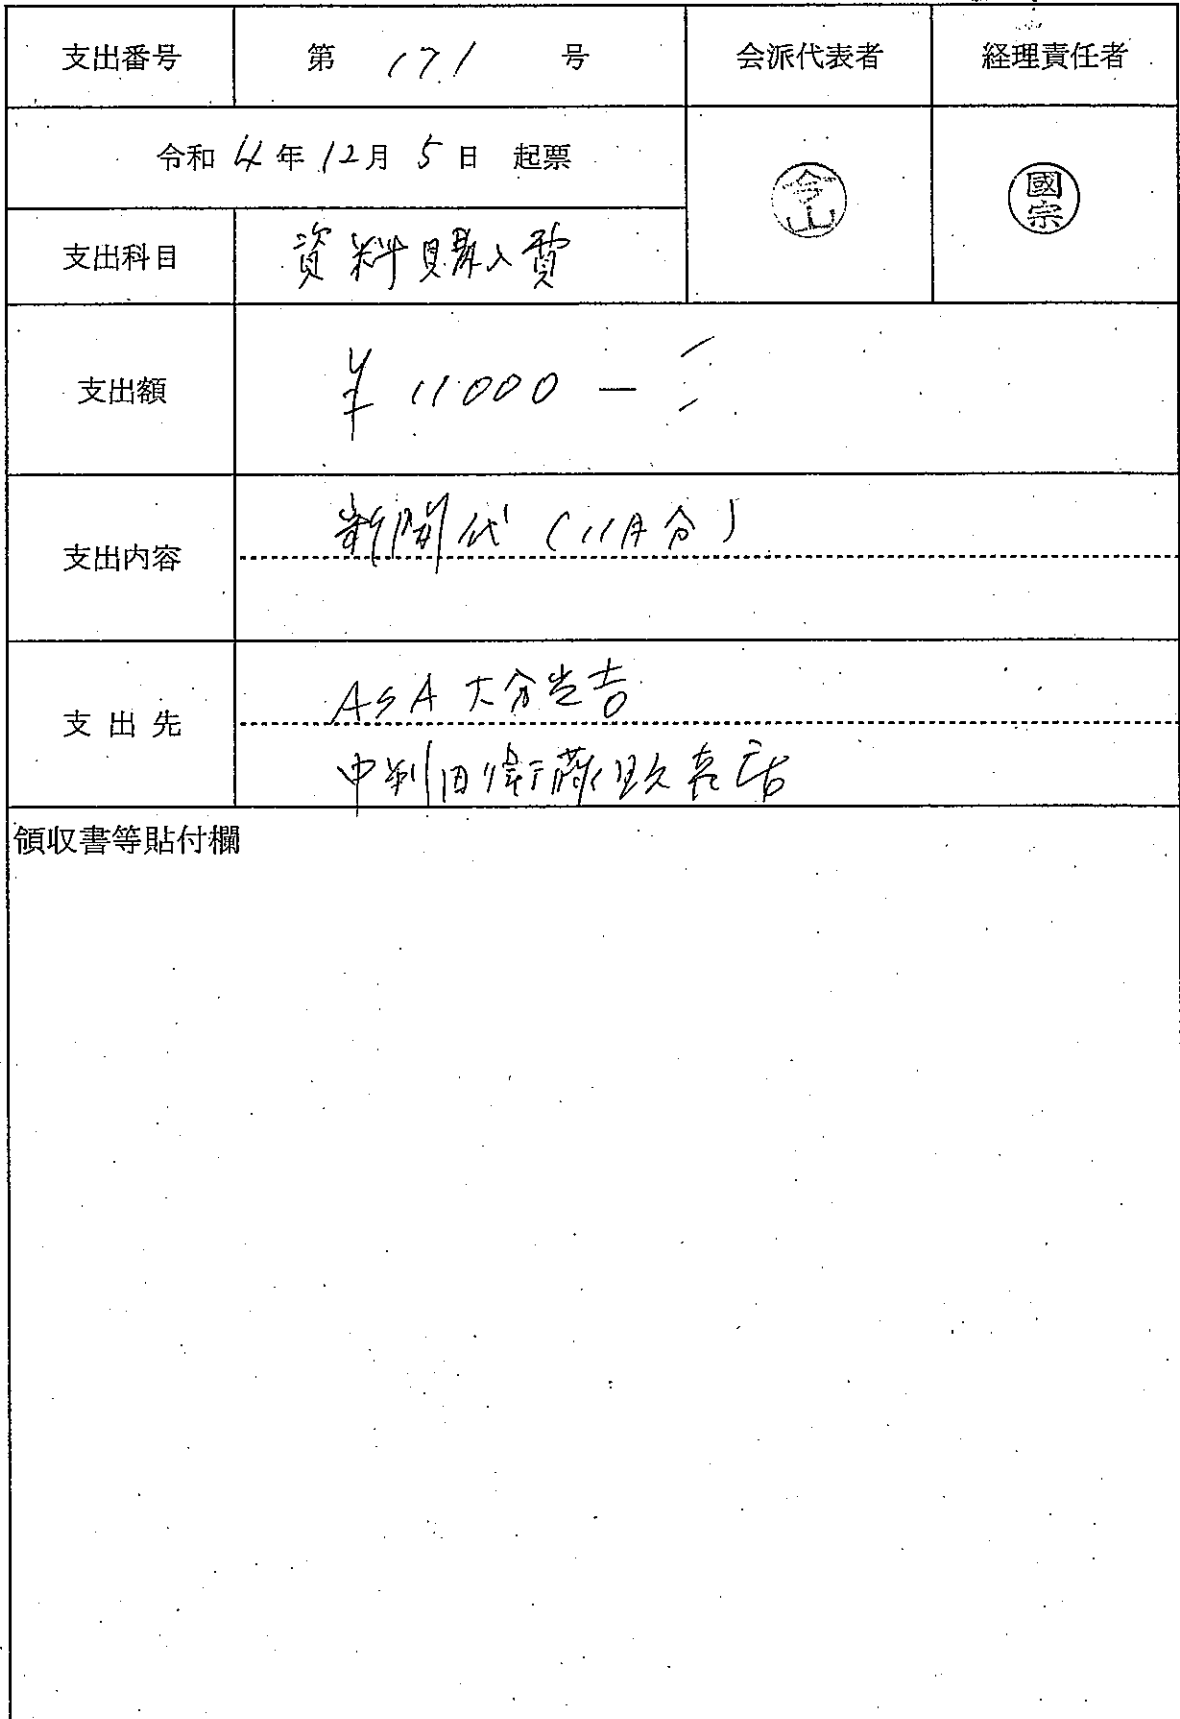 支出番号 第 171 号 会派代表者 経理責任者
令和 4 年 12 月 5 日 起票
今山
國宗
支出科目 資料購入費
支出額 ¥11000-
支出内容 新聞代(11月分)
支出先 ASA大分光吉
中判田衛藤販売店
領収書等貼付欄